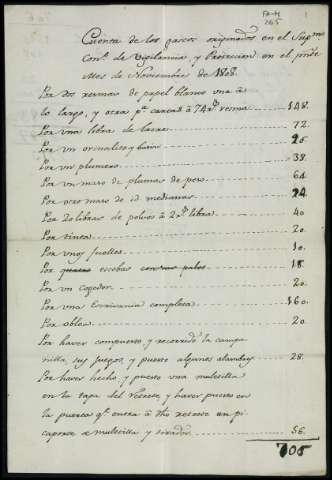 FA-M
265
Cuenta de los gastos originados en el Sup.mo
Con.o de Vigilancia, y Proteccion en el pnte
Mes de Noviembre de 1808.
Por dos resmas de papel blanco una à
lo largo, y otra p.a cartas à 74 r.s resma 148.
Por una libra de lacre 72.
Por un orinalito y 26.
Por un plumero 38.
Por un mazo de plumas de peso 64.
Por otro mazo de id medianas 24.
Por 20 libras de polvos à 2 r.s libra 40
Por tinta 20.
Por unos fuelles 10.
Por escobas con sus palos 18.
Por un cogedor 20.
Por una Escrivania completa 160.
Por oblea 20.
Por haver compuesto y recorrido la campa
nilla, sus juegos, y puesto algunos alambres 28.
Por haver hecho, y puesto una muletilla
en la tapa del Retrete, y haver puesto en
la puerta q.e entra à dho retrete un pi
caporte de muletilla y tirador 56.
705